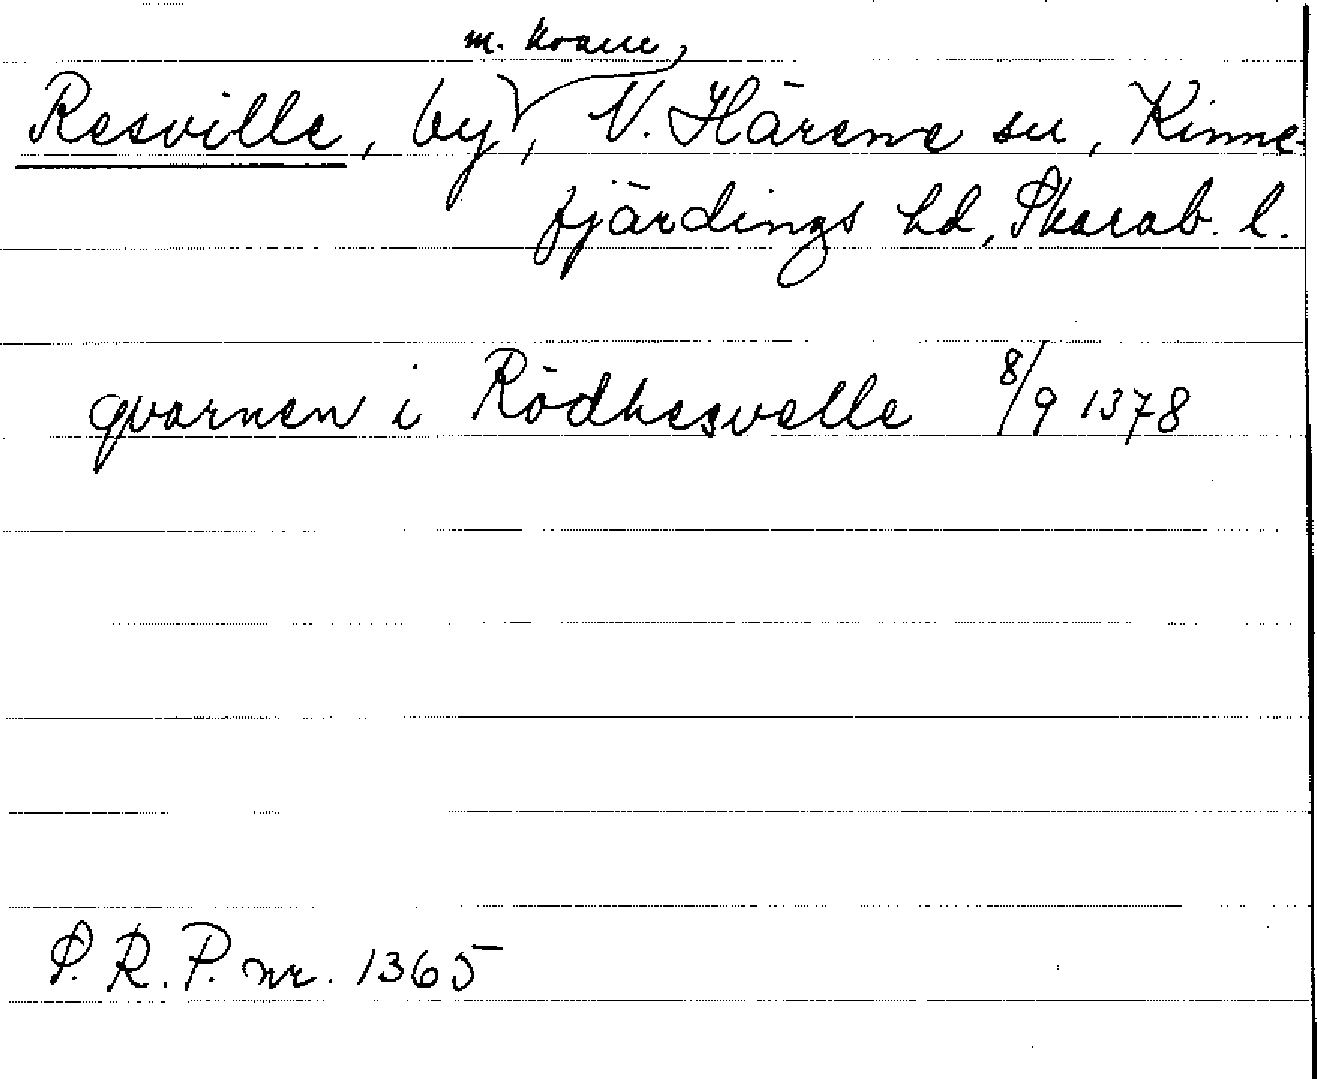 m. kvarn
Resville, by, V. Härene sn, Kinne-
fjärdings hd, Skarab. l.
qvarnen i Rödhesvelle 8/9 1378
S. R. P. nr. 1365